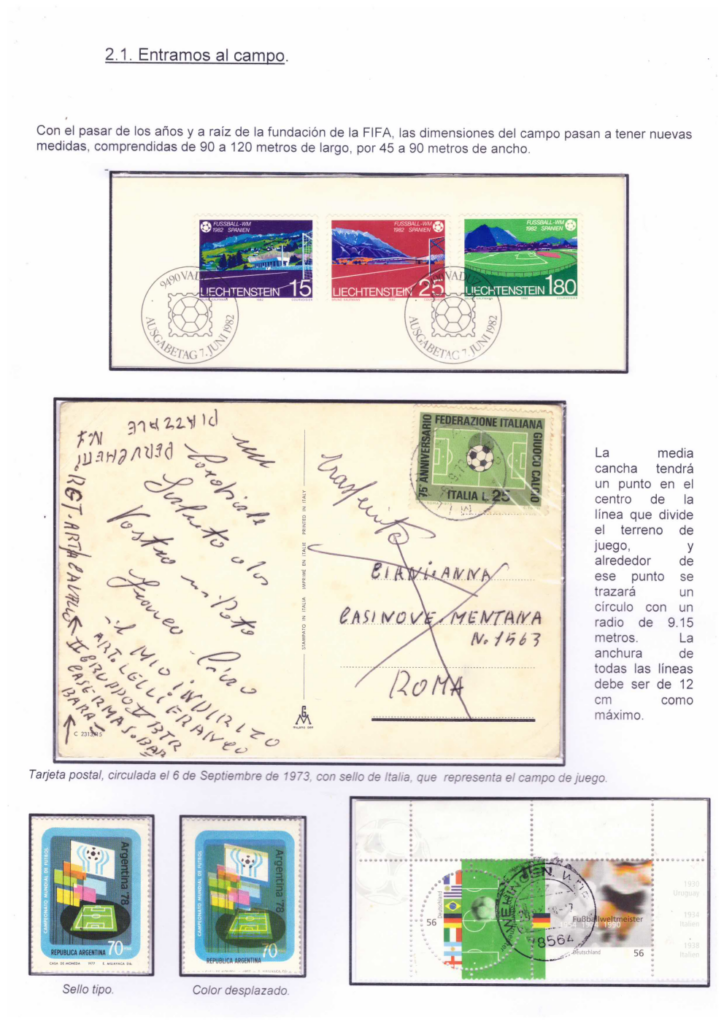 2.1. Entramos al campo.
Con el pasar de los años y a raíz de la fundación de la FIFA, las dimensiones del campo pasan a tener nuevas
medidas, comprendidas de 90 a 120 metros de largo, por 45 a 90 metros de ancho.
FUSSBALL-WM
1982 SPANIEN
LIECHTENSTEIN 15
FUSSBALL-WM
1982 SPANIEN
LIECHTENSTEIN 25
FUSSBALL-WM
1982 SPANIEN
LIECHTENSTEIN 180
9490 VAD
AUSGABETAG 7. JUNI 1982
AUSGABETAG 7. JUNI 1982
PIAZZALE
N.7
Saluto
Vostro
il MIO INDIRIZO
ART. LELLI FRANCO
II GRUPPO
BTR
CASERMA
BARI
C 231
STAMPATO IN ITALIA IMPRIMÉ EN ITALIE PRINTED IN ITALY
75° ANNIVERSARIO
FEDERAZIONE ITALIANA
GIUOCO CALCIO
ITALIA L. 25
CASINOVE. MENTANA
N. 1563
ROMA
La media
cancha tendrá
un punto en el
centro de la
línea que divide
el terreno de
juego, y
alrededor de
ese punto se
trazará un
círculo con un
radio de 9.15
metros. La
anchura de
todas las líneas
debe ser de 12
cm como
máximo.
Tarjeta postal, circulada el 6 de Septiembre de 1973, con sello de Italia, que representa el campo de juego.
CAMPEONATO MUNDIAL DE FUTBOL
Argentina '78
70
REPUBLICA ARGENTINA
CASA DE MONEDA
Sello tipo.
CAMPEONATO MUNDIAL DE FUTBOL
Argentina '78
70
REPUBLICA ARGENTINA
Color desplazado.
56
Fußballweltmeister
Deutschland
56
98564
1930
Uruguay
1934
Italien
1938
Italien